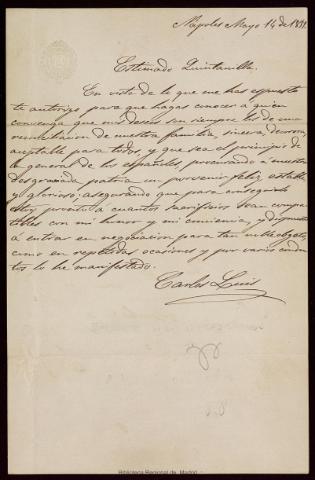 Napoles Mayo 14 de 185
Estimado Quintanilla.
En vista de lo que me has espuesto
te autorizo para que hagas conocer a quien
convenga que mis deseos son siempre los de una
reconciliacion de nuestra familia, sincera, decorosa,
aceptable para todos y que sea el principio de
la general de los españoles, procurando á nuestra
desgraciada patria un porvenir feliz, estable
y glorioso; asegurando que para conseguirlo
estoy pronto á cuantos sacrificios sean compa-
tibles con mi honor y mi conciencia, y dispuesto
á entrar en negociacion para tan noble objeto,
como en repetidas ocasiones y por varios conduc-
tos lo he manifestado.
Carlos Luis
Biblioteca Regional de Madrid